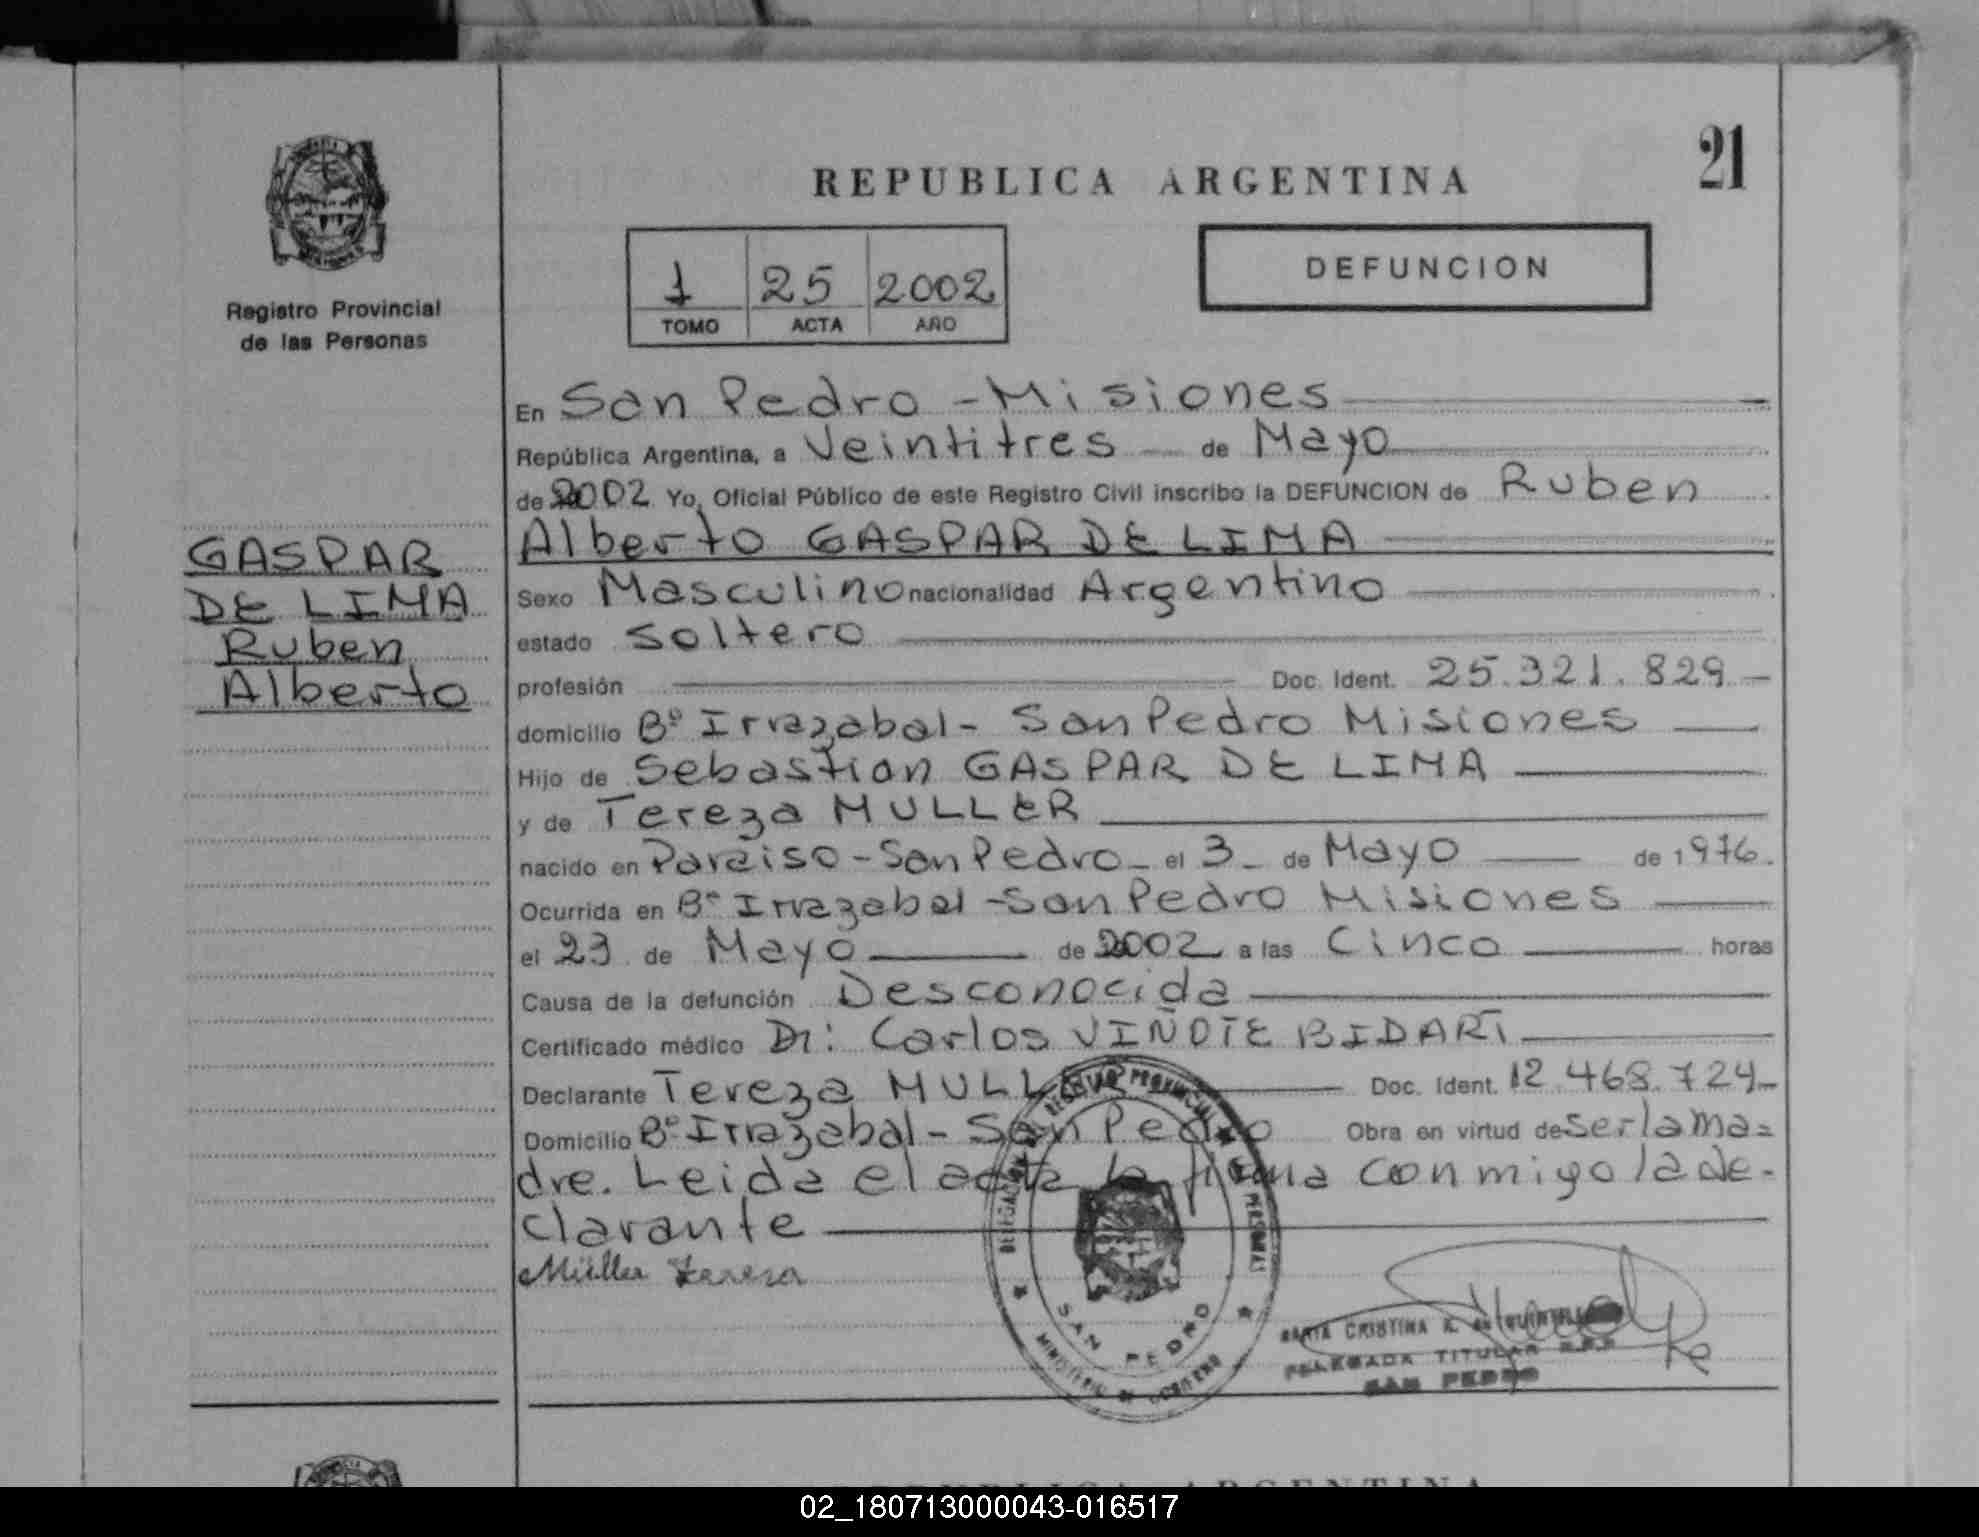 21
REPUBLICA ARGENTINA
Registro Provincial
de las Personas
1 25 2002
TOMO ACTA AÑO
DEFUNCION
GASPAR
DE LIMA
Ruben
Alberto
En San Pedro - Misiones
República Argentina, a Veintitres de Mayo
de 2002 Yo, Oficial Público de este Registro Civil inscribo la DEFUNCION de Ruben
Alberto GASPAR DE LIMA
Sexo Masculino nacionalidad Argentino
estado Soltero
profesión Doc. Ident. 25.321.829-
domicilio Bº Irrazabal - San Pedro Misiones
Hijo de Sebastian GASPAR DE LIMA
y de Tereza MULLER
nacido en Paraiso - San Pedro - el 3 - de Mayo de 1976.
Ocurrida en Bº Irrazabal - San Pedro Misiones
el 23 de Mayo de 2002 a las Cinco horas
Causa de la defunción Desconocida
Certificado médico Dr: Carlos VIÑOTE BIDART
Declarante Tereza MULLER Doc. Ident. 12.468.724-
Domicilio Bº Irrazabal - San Pedro Obra en virtud de ser la ma=
dre. Leida el acta la firma conmigo la de-
clarante
Müller Teresa
REGISTRO PROVINCIAL DE LAS PERSONAS
DELEGACION
SAN PEDRO
MINISTERIO DE GOBIERNO
MARIA CRISTINA R. de
DELEGADA TITULAR R.P.P.
SAN PEDRO
REPUBLICA ARGENTINA
02_180713000043-016517